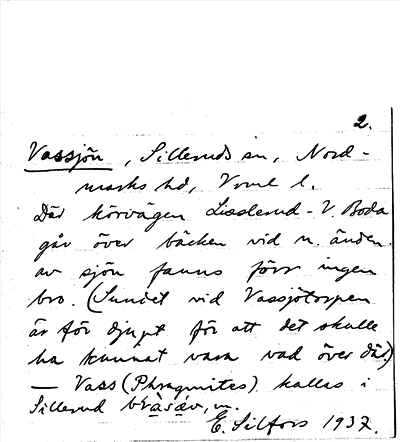 2.
Vassjön, Silleruds sn, Nord-
marks hd, Vrml l.
Där körvägen Lisslerud - V. Boda
går över bäcken vid n. änden
av sjön fanns förr ingen
bro. (Sundet vid Vassjötorpen
är för djupt för att det skulle
ha kunnat vara vad över där.)
— Vass (Phragmites) kallas i
Sillerud
E. Silfors 1937.